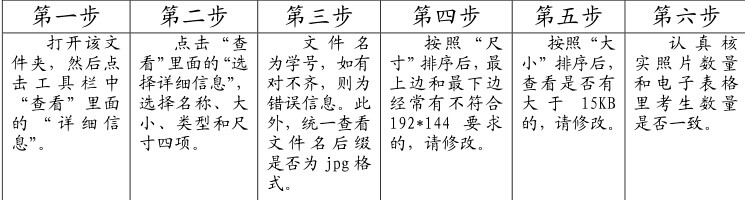 第一步
打开该文
件夹，然后点
击工具栏中
“查看”里面
的“详细信
息”。
第二步
点击“查
看”里面的“选
择详细信息”，
选择名称、大
小、类型和尺
寸四项。
第三步
文件名
为学号，如有
对不齐，则为
错误信息。此
外，统一查看
文件名后缀
是否为 jpg 格
式。
第四步
按照“尺
寸”排序后，最
上边和最下边
经常有不符合
192*144 要求
的，请修改。
第五步
按照“大
小”排序后，
查看是否有
大于 15KB
的，请修改。
第六步
认真核
实照片数量
和电子表格
里考生数量
是否一致。